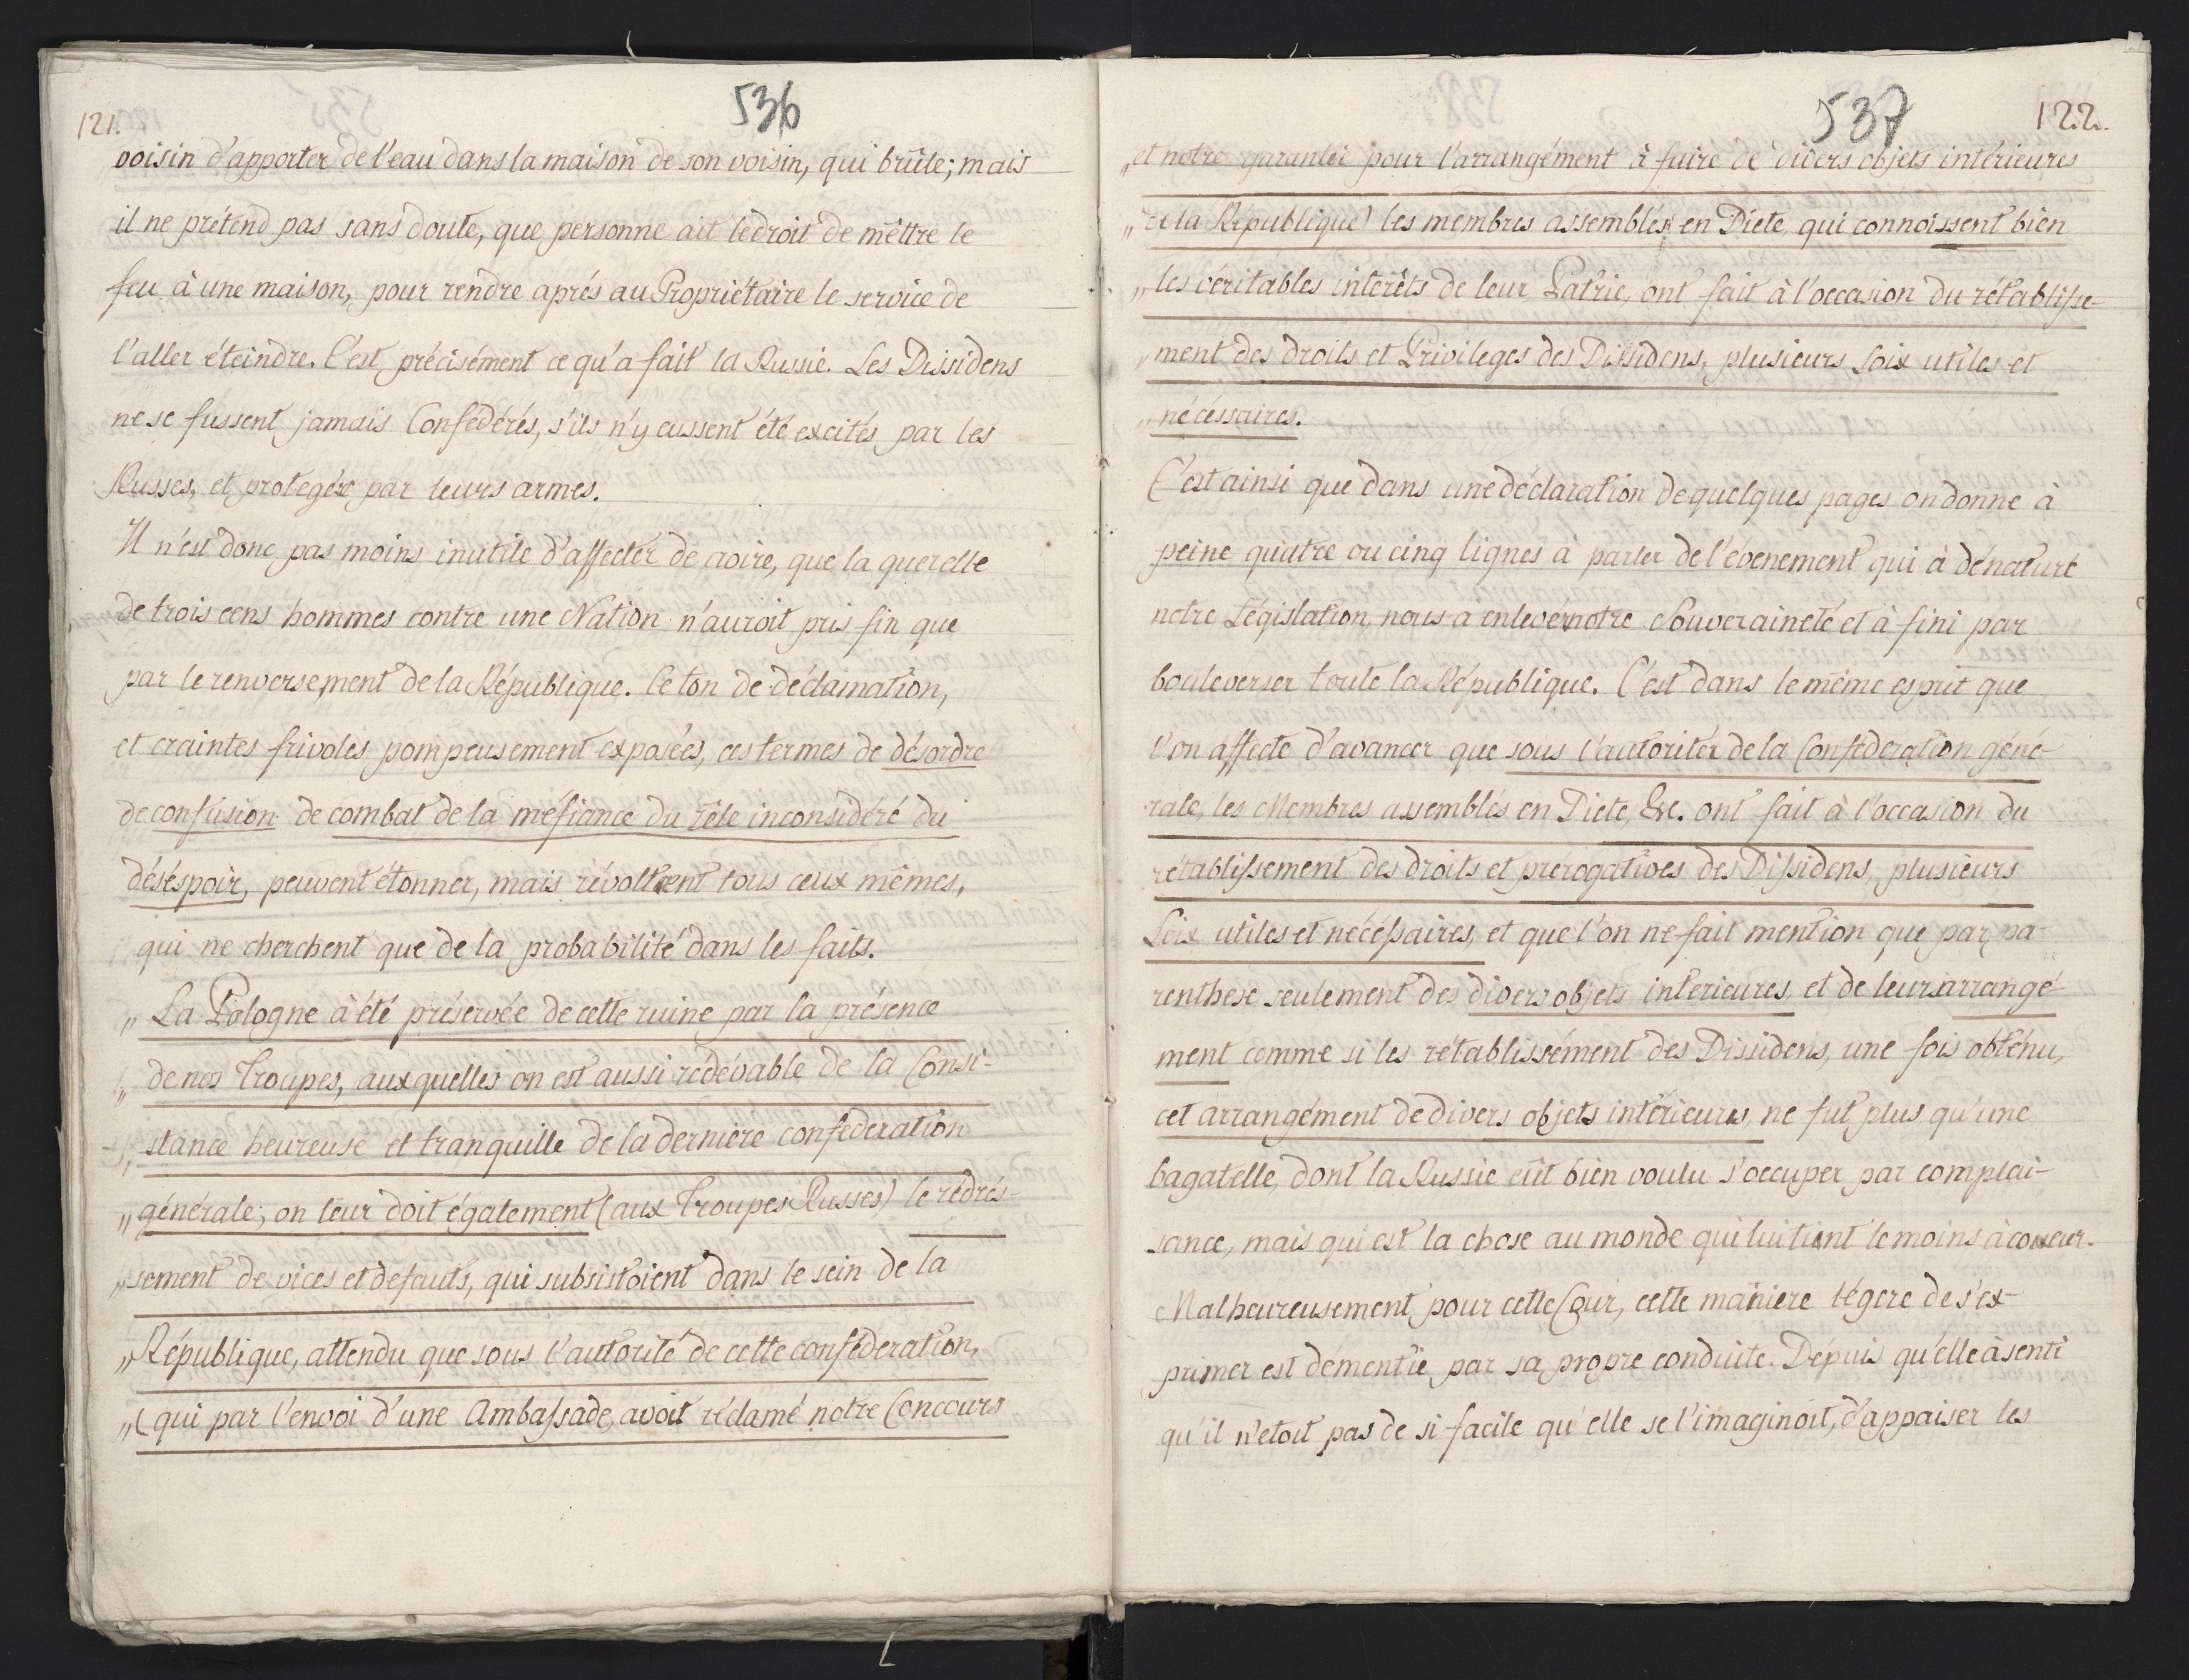 121.
536
voisin d'apporter de l'eau dans la maison de son voisin, qui brûle; mais
il ne prétend pas sans doute, que personne ait le droit de mêttre le
feu à une maison, pour rendre aprés au Propriétaire le service de
l'aller éteindre. C'est précisément ce qu'a fait la Russie. Les Dissidens
ne se fussent jamais Confédérés, s'ils n'y eussent été excités par les
Russes, et protegés par leurs armes.
Il n'est donc pas moins inutile d'affecter de croire, que la querelle
de trois cens hommes contre une Nation n'auroit pris fin que
par le renversement de la République. Ce ton de déclamation,
et craintes frivoles pompeusement exposées, ces termes de désordre
de confusion de combat de la méfiance du zêle inconsidéré du
déséspoir, peuvent étonner, mais révoltent tous ceux mêmes,
qui ne cherchent que de la probabilité dans les faits.
„ La Pologne à été préservée de cette ruine par la présence
„ de nos Troupes, auxquelles on est aussi rédévable de la Consi-
„ stance heureuse et tranquille de la derniere conféderation
„ générale; on leur doit également (aux Troupes Russes) le rédrés-
„ sement de vices et defauts, qui subsistoient dans le sein de la
„ République, attendu que sous l'autorité de cette conféderation,
„ (qui par l'envoi d'une Ambassade, avoit réclamé notre Concours
537
122.
„ et notre garantei pour l'arrangément à faire de divers objets intérieures
„ de la République) les membres assemblés en Diete, qui connoissent bien
„ les véritables interêts de leur Patrie, ont fait à l'occasion du rétablisse-
„ ment des droits et Privileges des Dissidens, plusieurs Loix utiles et
„ nécéssaires.
C'est ainsi que dans une déclaration de quelques pages on donne à
peine quatre ou cinq lignes à parler de l'évenement qui à dénaturé
notre Législation, nous à enlevér notre Souveraineté et à fini par
bouleverser toute la République. C'est dans le même esprit que
l'on affecte d'avancer que sous l'autoritér de la Conféderation géné-
rale, les Membres assemblés en Diete, &c. ont fait à l'occasion du
rétablissement des droits et prerogatives des Dissidens, plusieurs
Loix utiles et nécéssaires, et que l'on ne fait mention que par pa-
renthese seulement des divers objets interieures, et de leurs arrangé-
ment comme si les rétablissément des Dissidens, une fois obténu,
cet arrangément de divers objets intérieures, ne fut plus qu'une
bagatelle, dont la Russie eût bien voulu s'occuper par complai-
sance, mais qui est la chose au monde qui lui tient le moins à coueur.
Malheureusement pour cette Cour, cette maniere légere de s'ex-
primer est démentie par sa propre conduite. Dépuis qu'elle à senti
qu'il n'etoit pas de si facile qu'elle se l'imaginoit, d'appaiser les